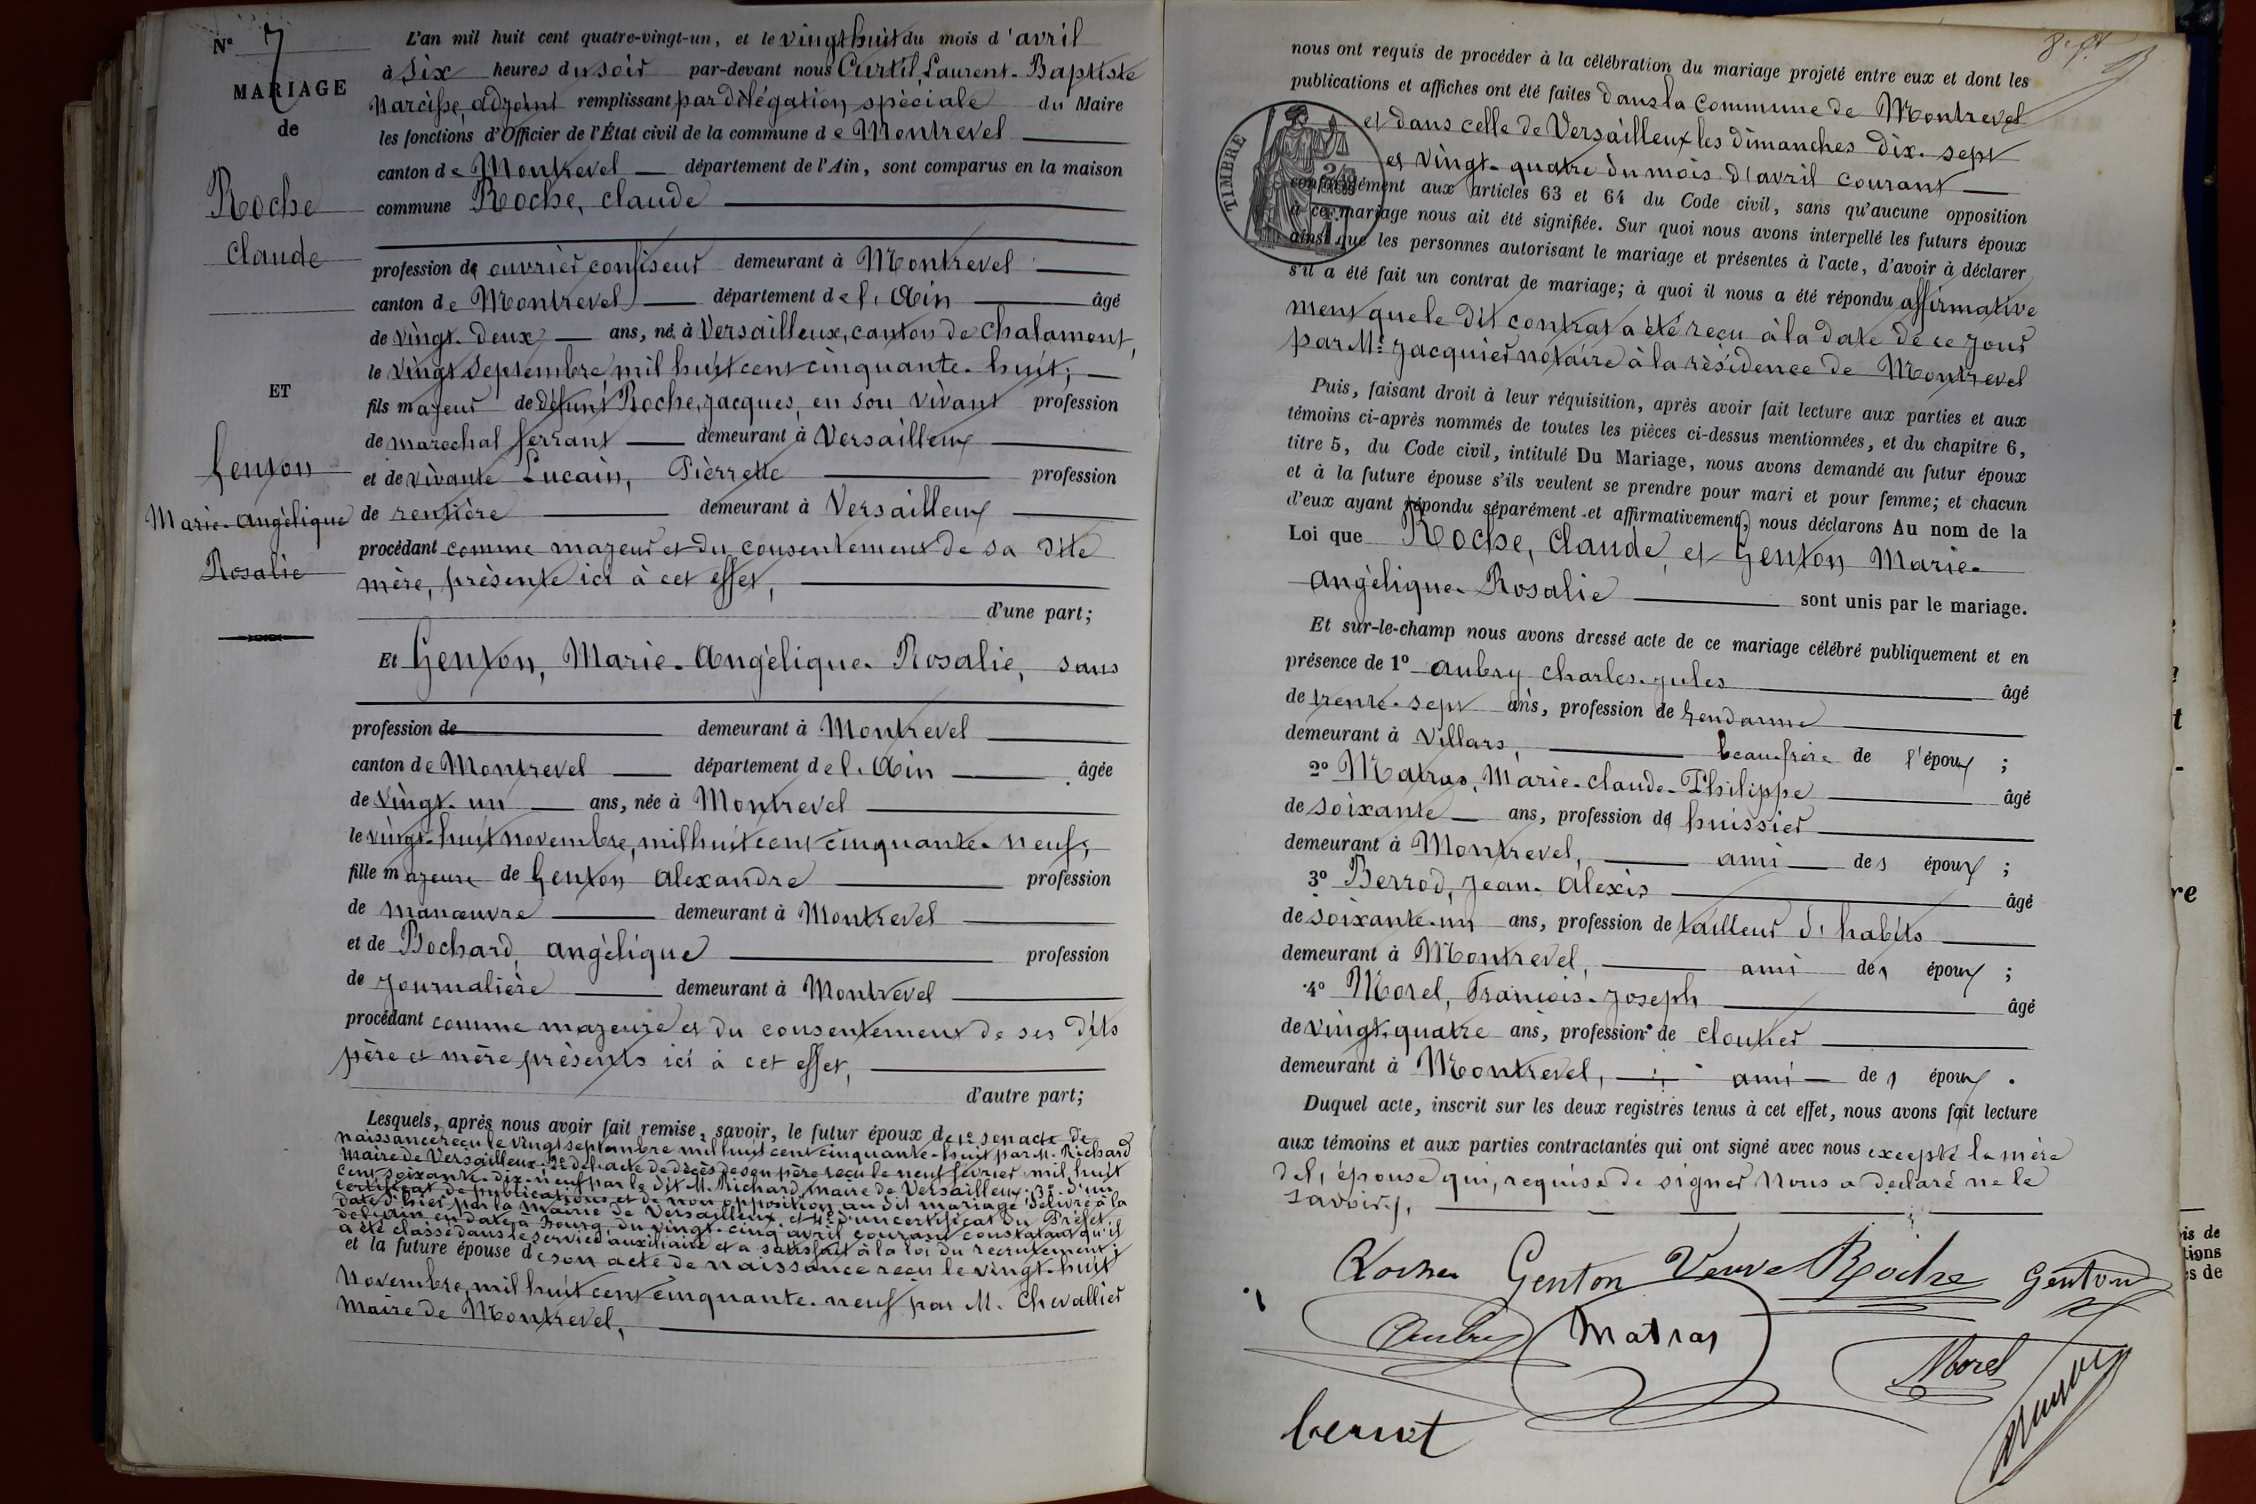 N° 7
MARIAGE
de
Roche
Claude
ET
Genton
Marie-Angèlique
Rosalie
L'an mil huit cent quatre-vingt-un, et le vingt huit du mois d'avril
à six heures du soir par-devant nous Curtil, Laurent-Baptiste
Narcisse, adjoint remplissant par dèlégation spèciale du Maire
les fonctions d'Officier de l'État civil de la commune de Montrevel
canton de Montrevel département de l'Ain, sont comparus en la maison
commune Roche, Claude
profession de ouvrier confiseur demeurant à Montrevel
canton de Montrevel département de l'Ain âgé
de vingt-deux ans, né à Versailleux, canton de Chalamont,
le vingt septembre mil huit cent cinquante-huit;
fils majeur de défunt Roche, Jacques, en son vivant profession
de marechal ferrant demeurant à Versailleux
et de vivante Lucain, Pièrrette profession
de rentière demeurant à Versailleux
procédant comme majeur et du consentement de sa dite
mère, présente ici à cet effet,
d'une part;
Et Genton, Marie-Angèlique-Rosalie, sans
profession de demeurant à Montrevel
canton de Montrevel département de l'Ain âgée
de vingt-un ans, née à Montrevel
le vingt-huit novembre, mil huit cent cinquante-neuf;
fille majeure de Genton Alexandre profession
de manœuvre demeurant à Montrevel
et de Bochard, Angèlique profession
de Journalière demeurant à Montrevel
procédant comme majeure et du consentement de ses dits
père et mère présents ici à cet effet,
d'autre part;
Lesquels, après nous avoir fait remise, savoir, le futur époux de 1° son acte de
naissance reçu le vingt septembre mil huit cent cinquante-huit par M. Richard
Maire de Versailleux; 2° de l'acte de décès de son père reçu le neuf février mil huit
cent soixante-dix-neuf par le dit M. Richard, maire de Versailleux; 3° d'un
certificat de publications et de non opposition au dit mariage délivré à la
date d'hier par la Mairie de Versailleux et 4° d'un certificat du Préfet
de l'Ain en date, à Bourg, du vingt-cinq avril courant constatant qu'il
a été classé dans le service auxiliaire et a satisfait à la loi du recrutement;
et la future épouse de son acte de naissance reçu le vingt-huit
Novembre, mil huit cent cinquante-neuf par M. Chevallier
Maire de Montrevel,
nous ont requis de procéder à la célébration du mariage projeté entre eux et dont les
publications et affiches ont été faites dans la Commune de Montrevel
et dans celle de Versailleux les dimanches dix-sept
et vingt-quatre du mois d'avril courant
TIMBRE
conformément aux articles 63 et 64 du Code civil, sans qu'aucune opposition
à ce mariage nous ait été signifiée. Sur quoi nous avons interpellé les futurs époux
ainsi que les personnes autorisant le mariage et présentes à l'acte, d'avoir à déclarer
s'il a été fait un contrat de mariage; à quoi il nous a été répondu affirmative
ment que le dit contrat a été reçu à la date de ce jour
par Me Jacquier notaire à la rèsidence de Montrevel
Puis, faisant droit à leur réquisition, après avoir fait lecture aux parties et aux
témoins ci-après nommés de toutes les pièces ci-dessus mentionnées, et du chapitre 6,
titre 5, du Code civil, intitulé Du Mariage, nous avons demandé au futur époux
et à la future épouse s'ils veulent se prendre pour mari et pour femme; et chacun
d'eux ayant répondu séparément et affirmativement, nous déclarons Au nom de la
Loi que Roche, Claude, et Genton Marie-
Angèlique-Rosalie sont unis par le mariage.
Et sur-le-champ nous avons dressé acte de ce mariage célébré publiquement et en
présence de 1° Aubry Charles-Jules âgé
de trente-sept ans, profession de Gendarme
demeurant à Villars, beau-frère de l'époux ;
2° Matras, Marie-Claude-Philippe âgé
de soixante ans, profession de huissier
demeurant à Montrevel, ami des époux ;
3° Berrod, Jean-Alexis âgé
de soixante-un ans, profession de tailleur d'habits
demeurant à Montrevel, ami des époux ;
4° Morel, François-Joseph âgé
de vingt-quatre ans, profession de cloutier
demeurant à Montrevel, ami des époux .
Duquel acte, inscrit sur les deux registres tenus à cet effet, nous avons fait lecture
aux témoins et aux parties contractantes qui ont signé avec nous excepté la mère
de l'épouse qui, requise de signer nous a declaré ne le
savoir,
Roche Genton Veuve Roche Genton
Aubry Matras Morel